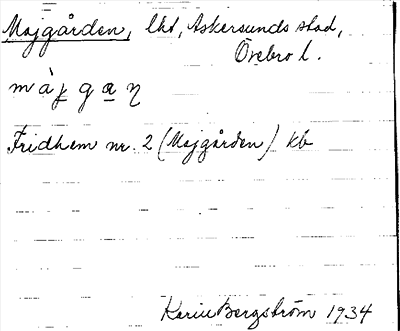 Majgården, lht, Askersunds stad,
Örebro l.
Fridhem nr. 2 (Majgården) kb
Karin Bergström 1934